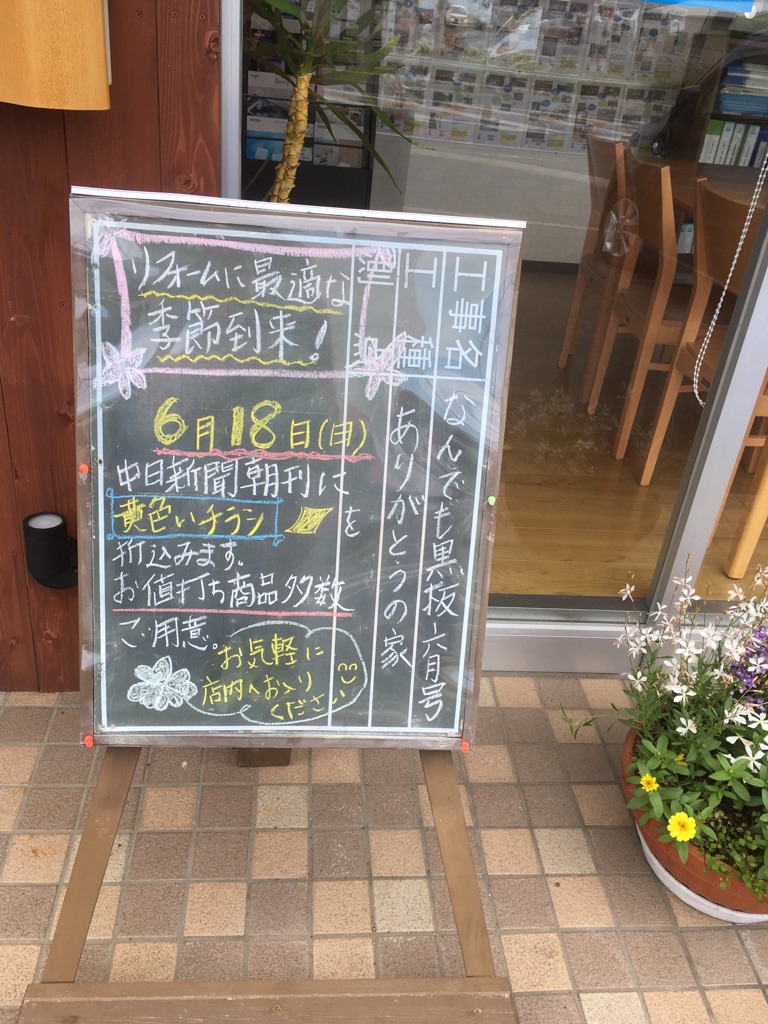 工事名
なんでも黒板 六月号
工種
ありがとうの家
測点
リフォームに最適な
季節到来!
6月18日(日)
中日新聞朝刊に
黄色いチラシ を
折込みます。
お値打ち商品多数
ご用意。
お気軽に
店内へお入り
ください